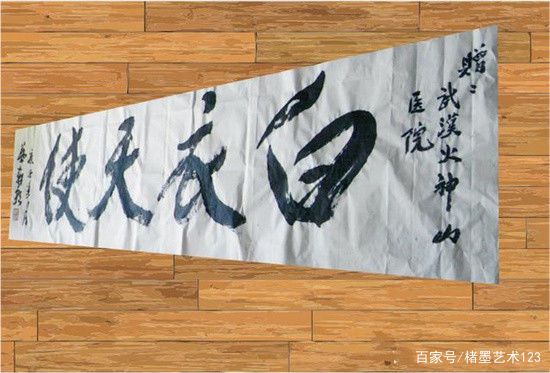 赠：
武漢火神山
医院
白衣天使
百家号/楮墨艺术123